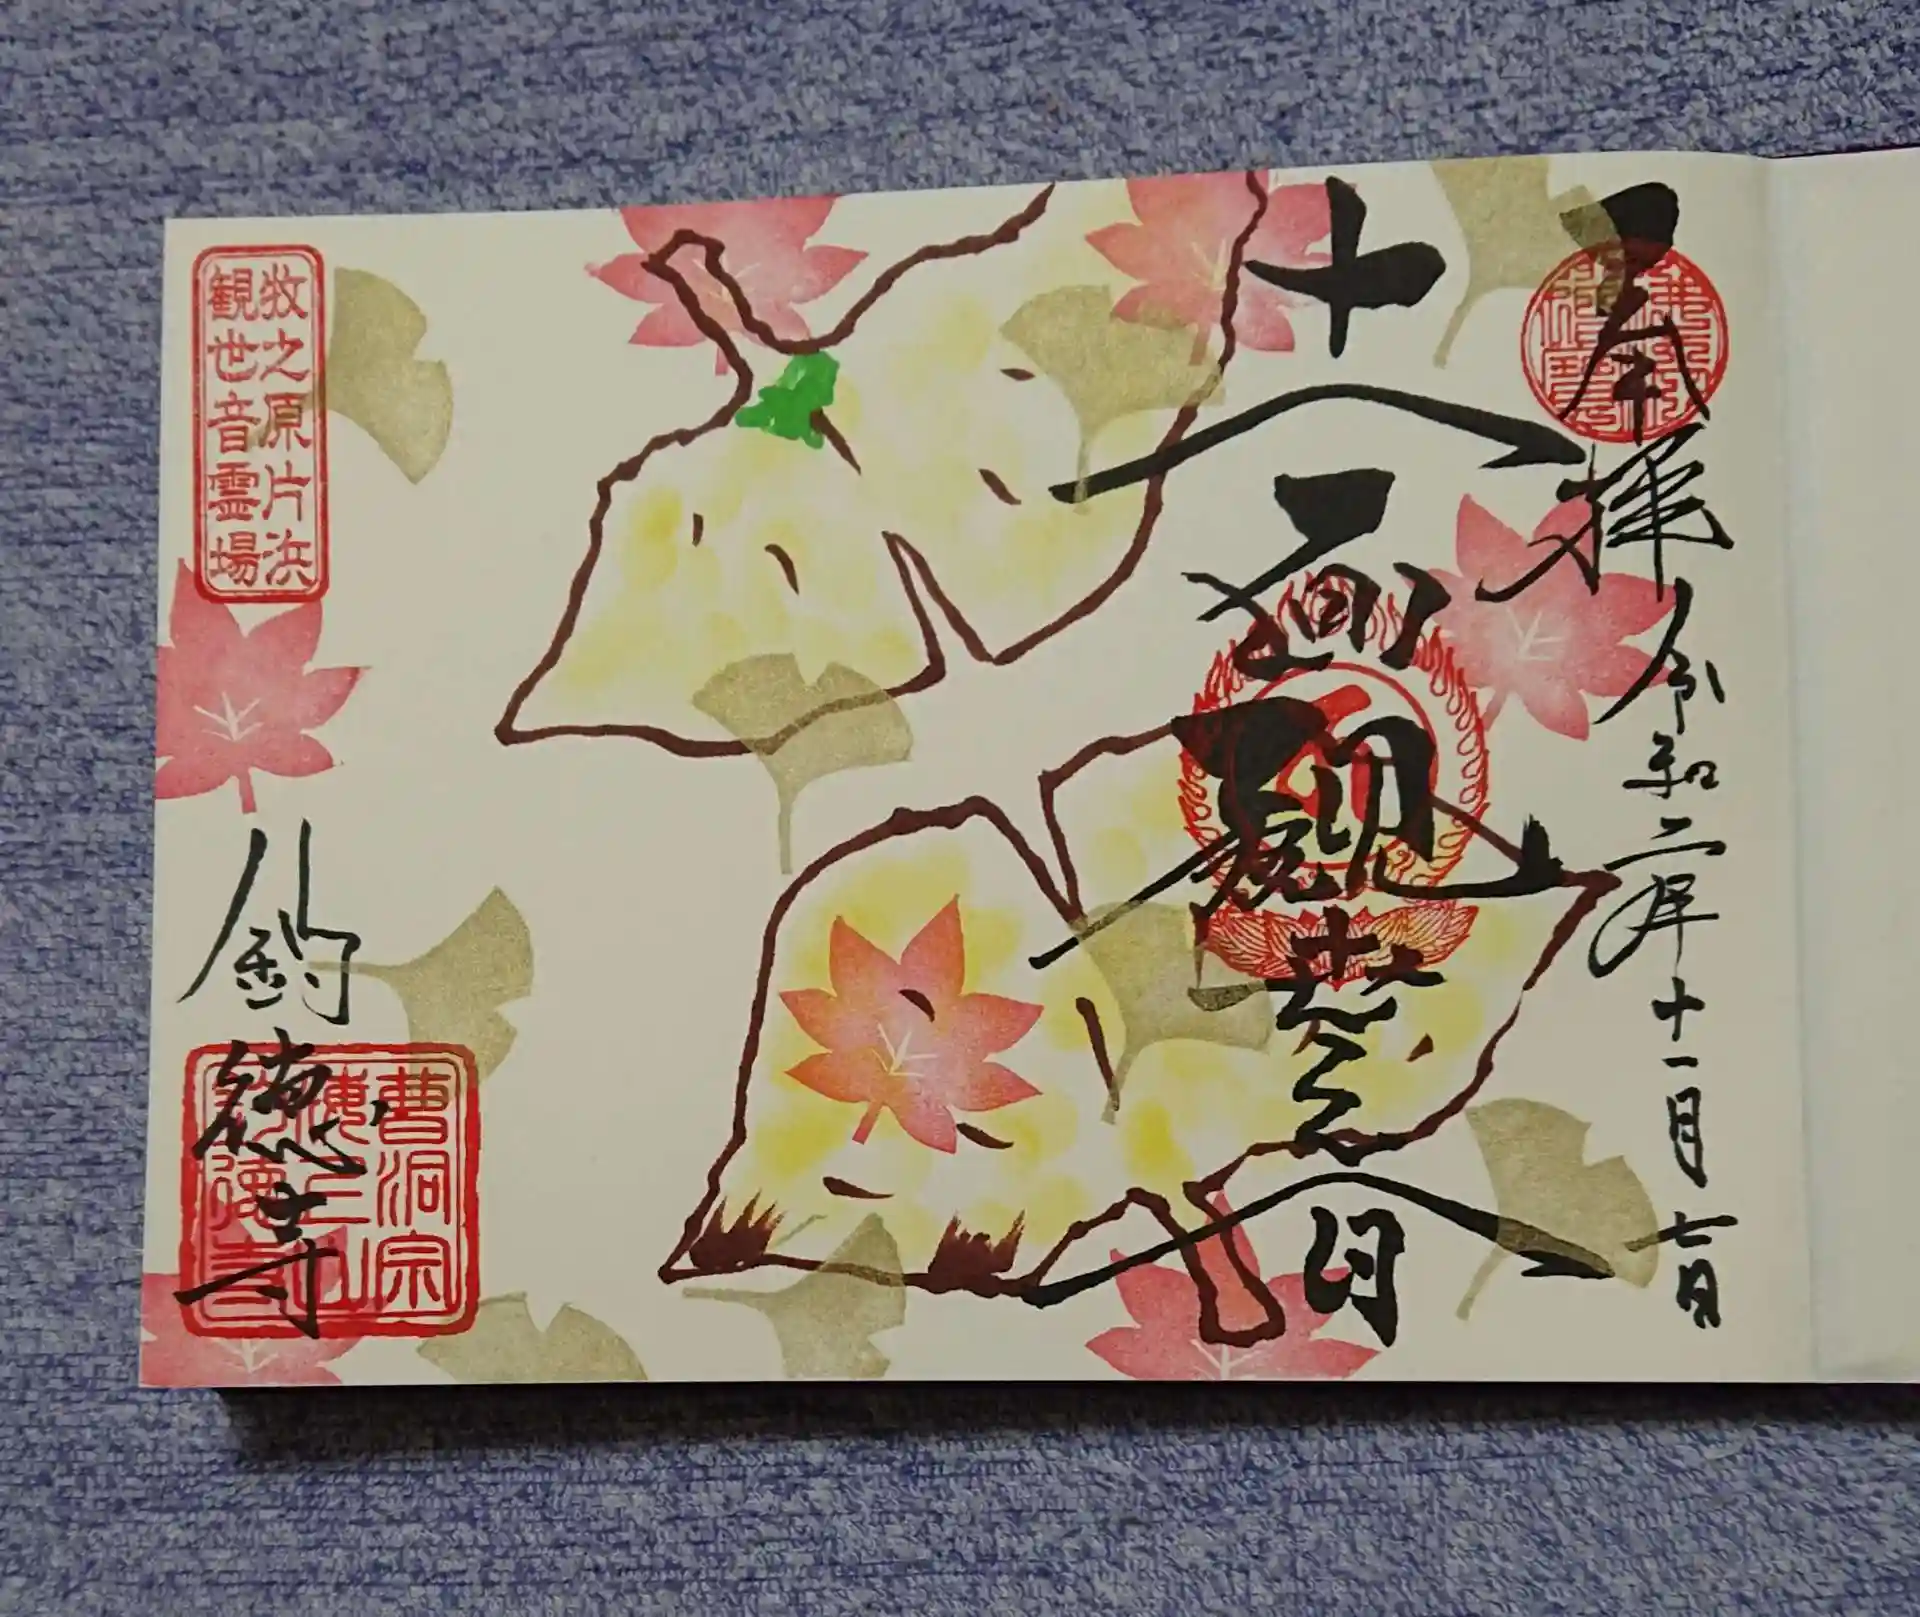 奉拝
令和二年十一月七日
十一面観世音
牧之原片浜
観世音霊場
釣徳寺
曹洞宗
釣徳寺